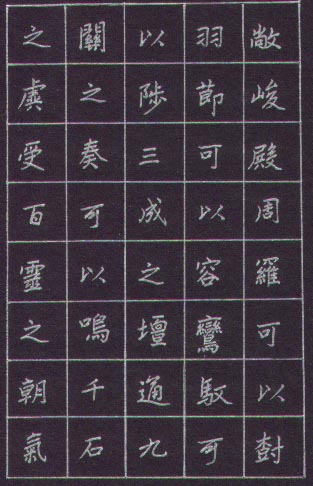 敞峻殿周羅可以尌
羽節可以容鸞馭可
以陟三成之壇通九
關之奏可以鳴千石
之虡受百靈之朝氣